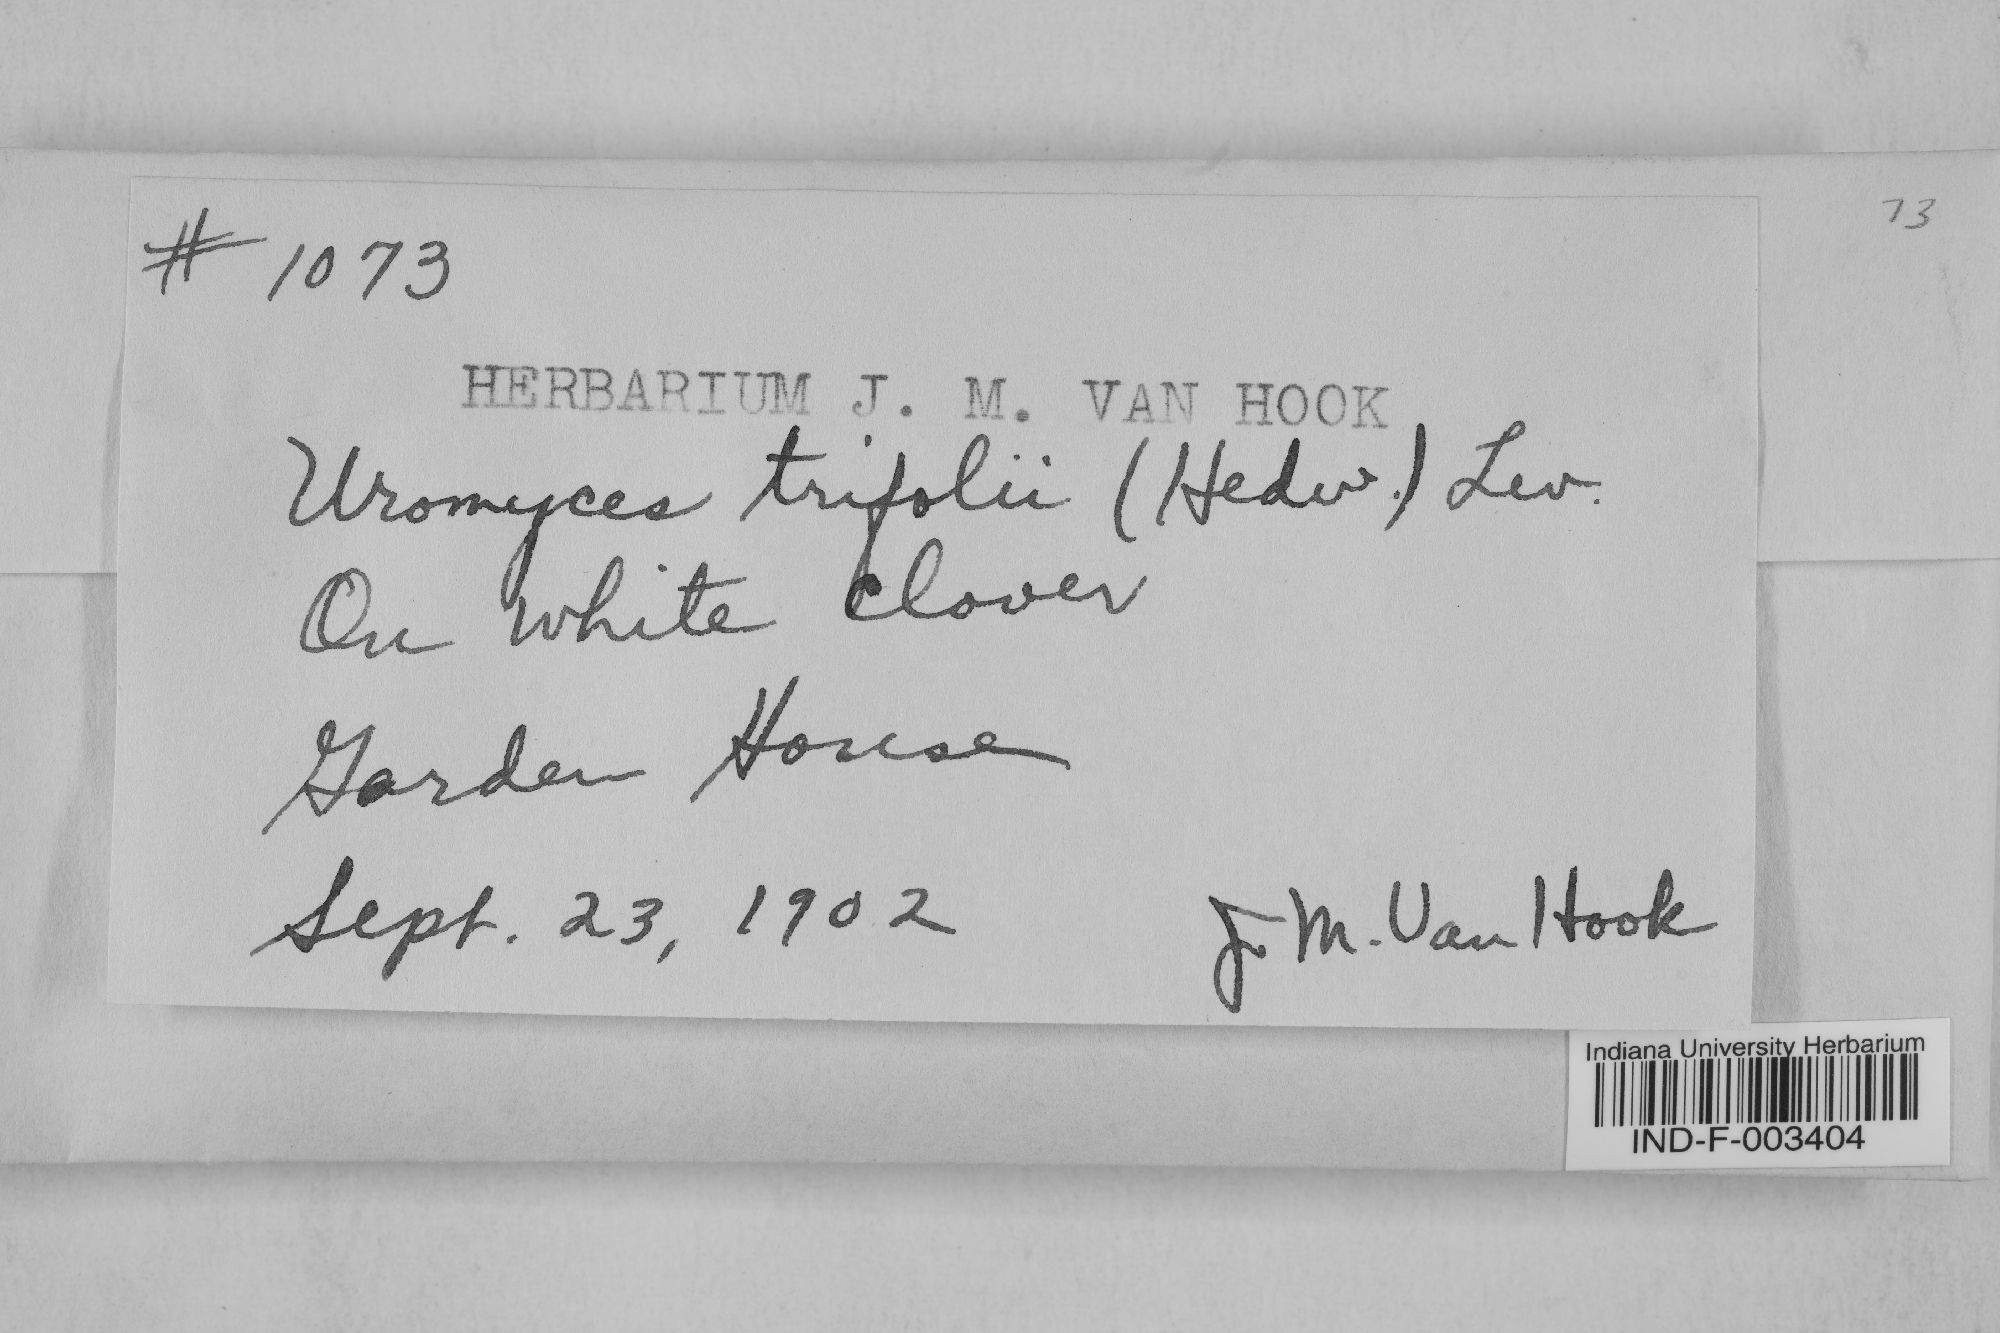 # 1073
73
HERBARIUM J. M. VAN HOOK
Uromyces trifolii (Hedw.) Lev.
On white clover
Garden House
Sept. 23, 1902 J. M. Van Hook
Indiana University Herbarium
IND-F-003404